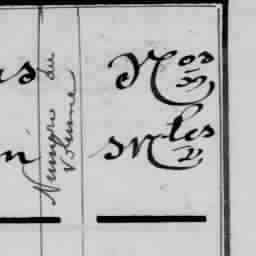 as
n
Numéro du
Volume
Nos
Mles